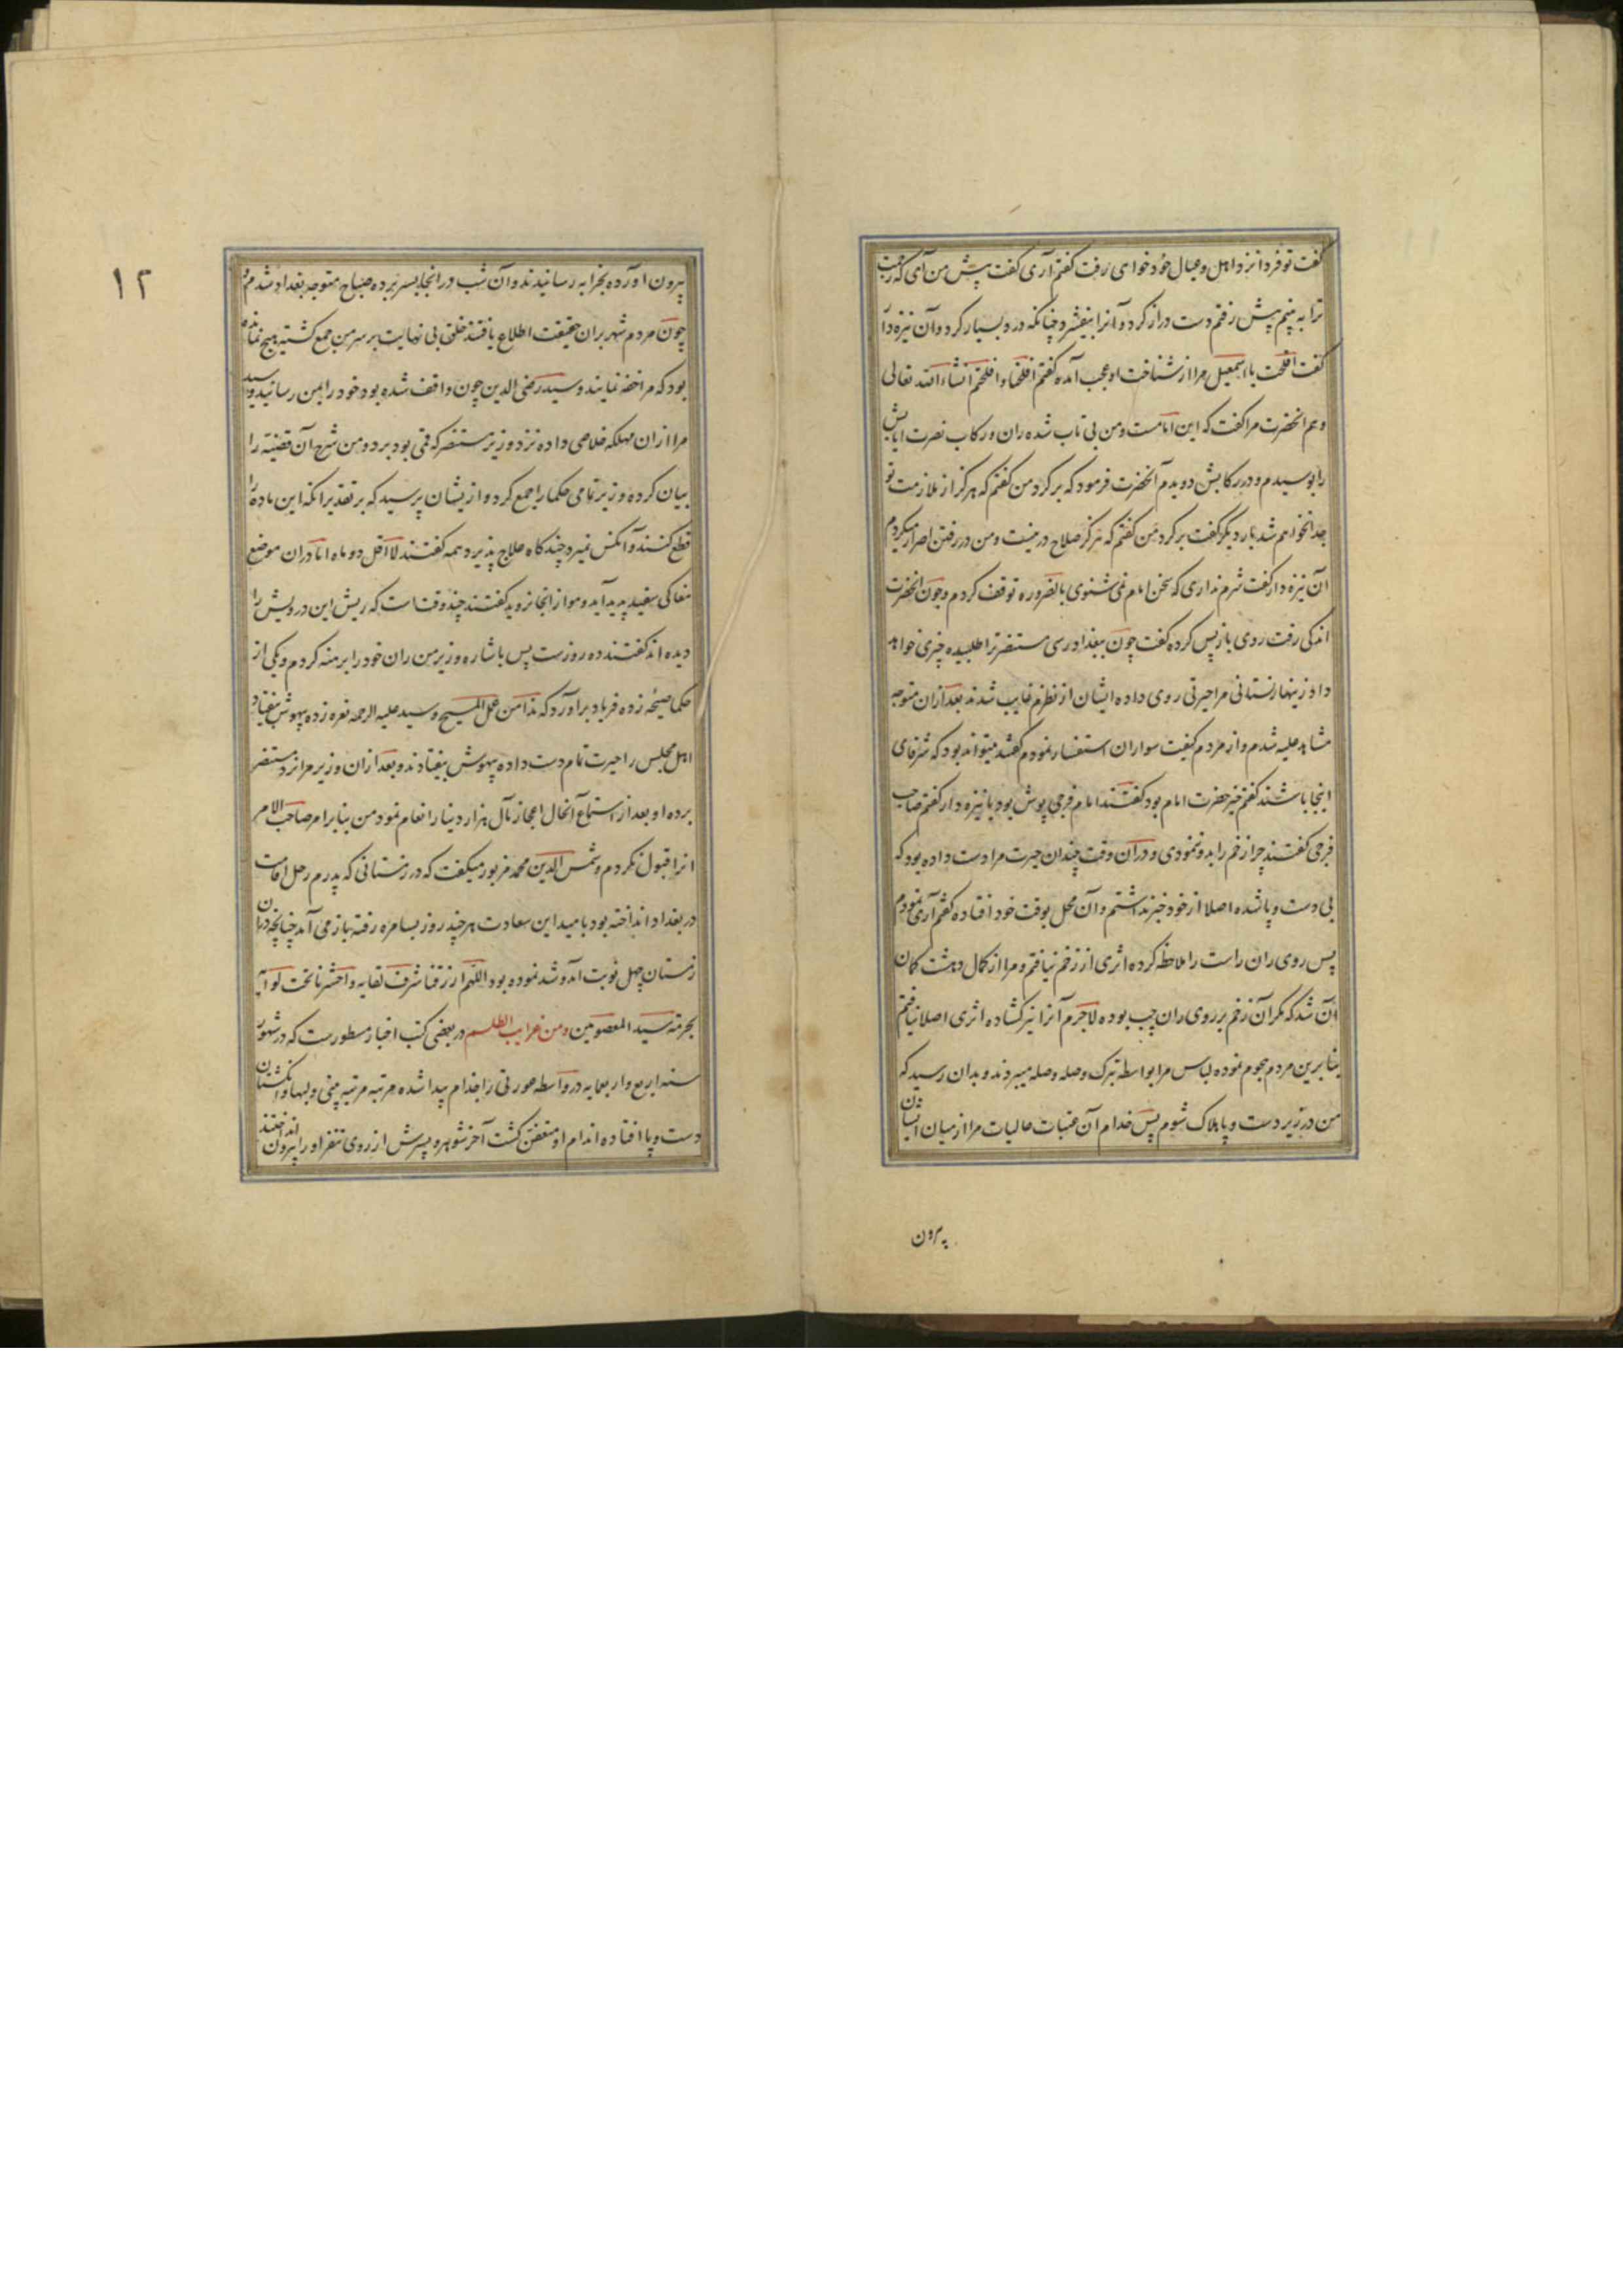 گفت تو فردا نزد اهل و عیال خود خواهی رفت گفتم آری گفت پیش من آی که زحمت
ترا به بینم پیش رفتم دست دراز کرد و آنرا بیفشرد چنانکه درد بسیار کرد و آن نیزه دار
گفت افلحت یا اسمعیل مرا از شناخت او عجب آمده گفتم افلحنا و افلحتم انشاء الله تعالی
و هم آنحضرت مرا گفت که این امامست و من بی تاب شده ران و رکاب نصرت ایابش
را بوسیدم و در رکابش دویدم آنحضرت فرمود که برگرد من گفتم که هرگز از ملازمت تو
جدا نخواهم شد بار دیگر گفت برگرد من گفتم که هرگز صلاح در نیست و من در رفتن اصرار میکردم
آن نیزه دار گفت شرم نداری که سخن امام نمی شنوی بالضروره توقف کردم و چون آنحضرت
اندکی رفت روی باز پس کرده گفت چون ببغداد رسی مستنصر ترا طلبیده چیزی خواهد
داد زینهار نستانی مرا حیرتی روی داده ایشان از نظرم غایب شدند بعد از آن متوجه
مشاهد علیه شدم و از مردم کیفیت سواران استفسار نمودم گفتند میتواند بود که شرفای
اینجا باشند گفتم خیر حضرت امام بود گفتند امام فرجی پوش بود یا نیزه دار گفتم صاحب
فرجی گفتند چرا زخم را بدو ننمودی و در آن وقت چندان حیرت مرا دست داده بود که
بی دست و پا شده اصلا از خود خبر نداشتم و آن محل بوقت خود افتاده گفتم آری نمودم
پس روی ران راست را ملاحظه کرده اثری از زخم نیافتم و مرا از کمال دهشت گمان
آن شد که مگر آن زخم بر روی ران چپ بوده لاجرم آنرا نیز گشاده اثری اصلا نیافتم
بنابرین مردم هجوم نموده لباس مرا بواسطه تبرک وصله وصله میبردند و بدان رسید که
من در زیر دست و پا هلاک شوم پس خدام آن عتبات عالیات مرا از میان ایشان
بیرون
۱۲
بیرون آورده بخزانه رسانیدند و آن شب در انجا بسر برده صباح متوجه بغداد شدم و
چون مردم شهر بران حقیقت اطلاع یافتند خلقی بی نهایت بر سر من جمع گشتند هیچ نمانده
بود که مرا خفه نمایند و سید رضی الدین چون واقف شده بود خود را بمن رسانید و سید
مرا از ان مهلکه خلاصی داده نزد وزیر مستنصر که قمی بود برد و من شرح آن قضیه را
بیان کرده وزیر تمامی حکما را جمع کرد و از یشان پرسید که بر تقدیر آنکه این ماده را
قطع کنند و آنکس نمیرد چند گاه علاج پذیرد همه گفتند لا اقل دو ماه اما در آن موضع
مغاکی سفید پدید آید و مو از انجا نروید گفتند چند وقتست که ریش این درویش را
دیده اند گفتند ده روزست پس باشاره وزیر من ران خود را برهنه کردم و یکی از
حکما صیحه زده فریاد برآورد که هذا من عمل المسیح و سید علیه الرحمه نعره زده بیهوش بیفتاد
اهل مجلس را حیرت تمام دست داده بیهوش بیفتادند و بعد از ان وزیر مرا نزد مستنصر
برده او بعد از استماع آنحال اعجاز مآل هزار دینار انعام نمود من بنا بر امر صاحب الامر
آنرا قبول نکردم و شمس الدین محمد مزبور میگفت که در زمستانی که پدرم رحل اقامت
در بغداد انداخته بود بامید این سعادت هر چند روز بسامره رفته باز می آمد چنانچه در آن
زمستان چهل نوبت آمد و شد نموده بود اللهم ارزقنا شرف لقایه و احشرنا تحت لوآیه
بحرمة سید المعصومین ومن غرایب الطلسم در بعضی کتب اخبار مسطورست که در شهور
سنه اربع و اربعمایه در واسطه عورتی را جذام پیدا شده مرتبه مرتبه بینی و لبها و انگشتان
دست و پا افتاده اندام او متعفن گشت آخر شوهر و پسرش از روی تنفر او را بیرون انداختند